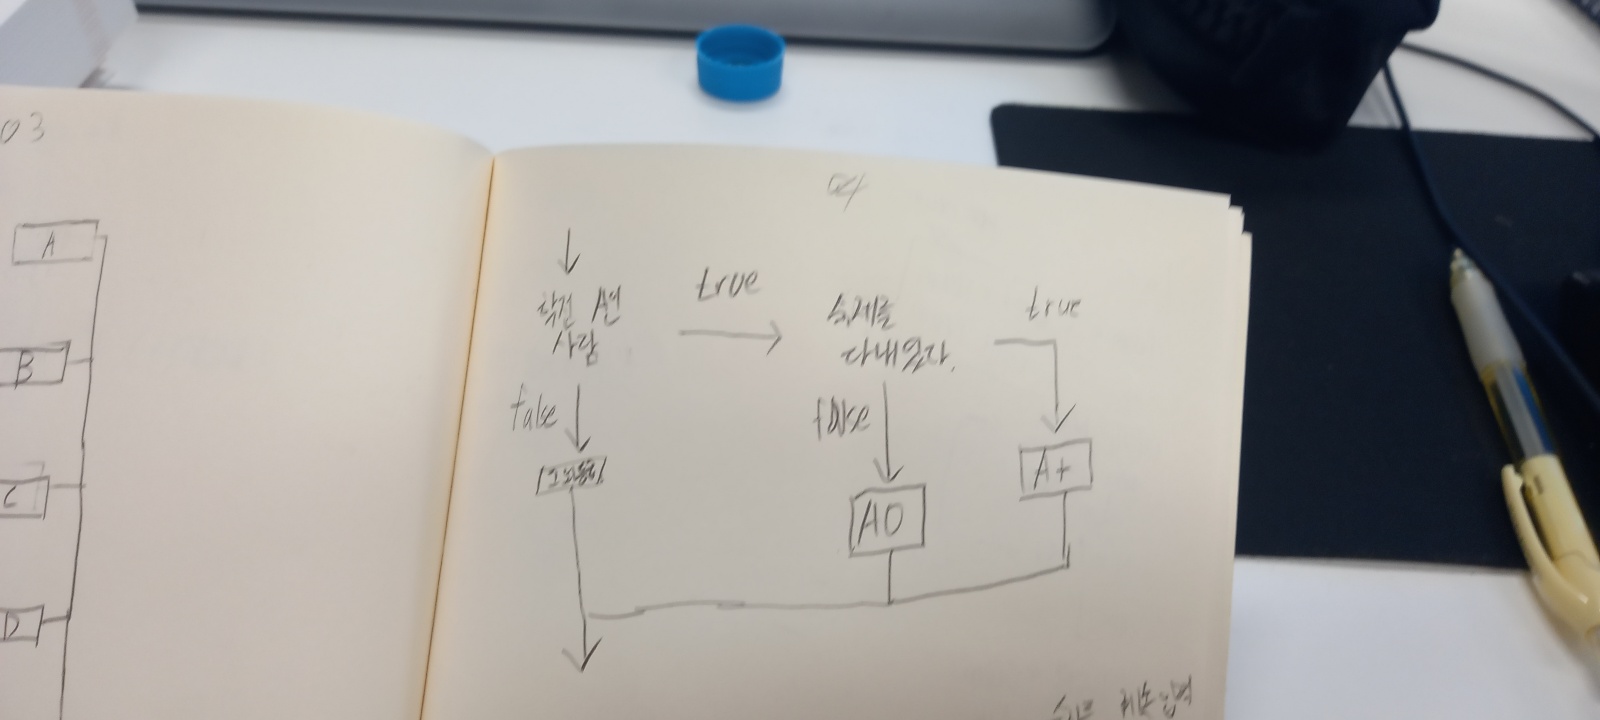 03
A
B
C
D
04
학점 A면
사람
true
숙제를
다내었다.
true
false
false
A0
A+